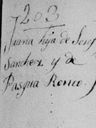 203
Juana hija de
Sanchez y de
Pasqua Romo